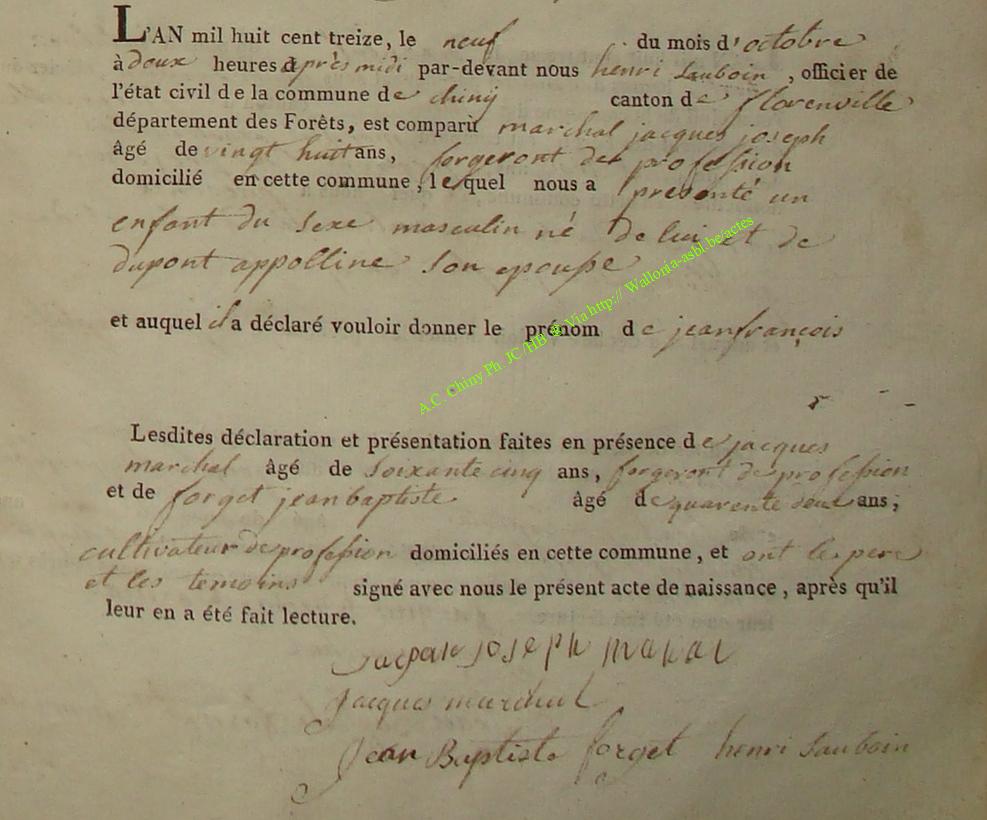 L'AN mil huit cent treize, le neuf du mois d'octobre
à doux heures après midi par-devant nous henri Lauboin , officier de
l'état civil de la commune de chiny canton de florenville
département des Forêts, est comparu marchal jacques joseph
âgé de vingt huit ans, forgeront de profession
domicilié en cette commune, lequel nous a présenté un
enfant du sexe masculin né de lui et de
dupont appolline son epouse
et auquel il a déclaré vouloir donner le prénom de jeanfrançois
Lesdites déclaration et présentation faites en présence de jacques
marchal âgé de soixante cinq ans, forgeront de profession
et de forget jeanbaptiste âgé de quarente deux ans,
cultivateur de profession domiciliés en cette commune, et ont le pere
et les temoins signé avec nous le présent acte de naissance, après qu'il
leur en a été fait lecture.
joseph
jacques marchal
jean Baptiste forget henri Lauboin
A.C. Chiny Ph. JC /HB & Via http:// Wallonia-asbl.be/actes